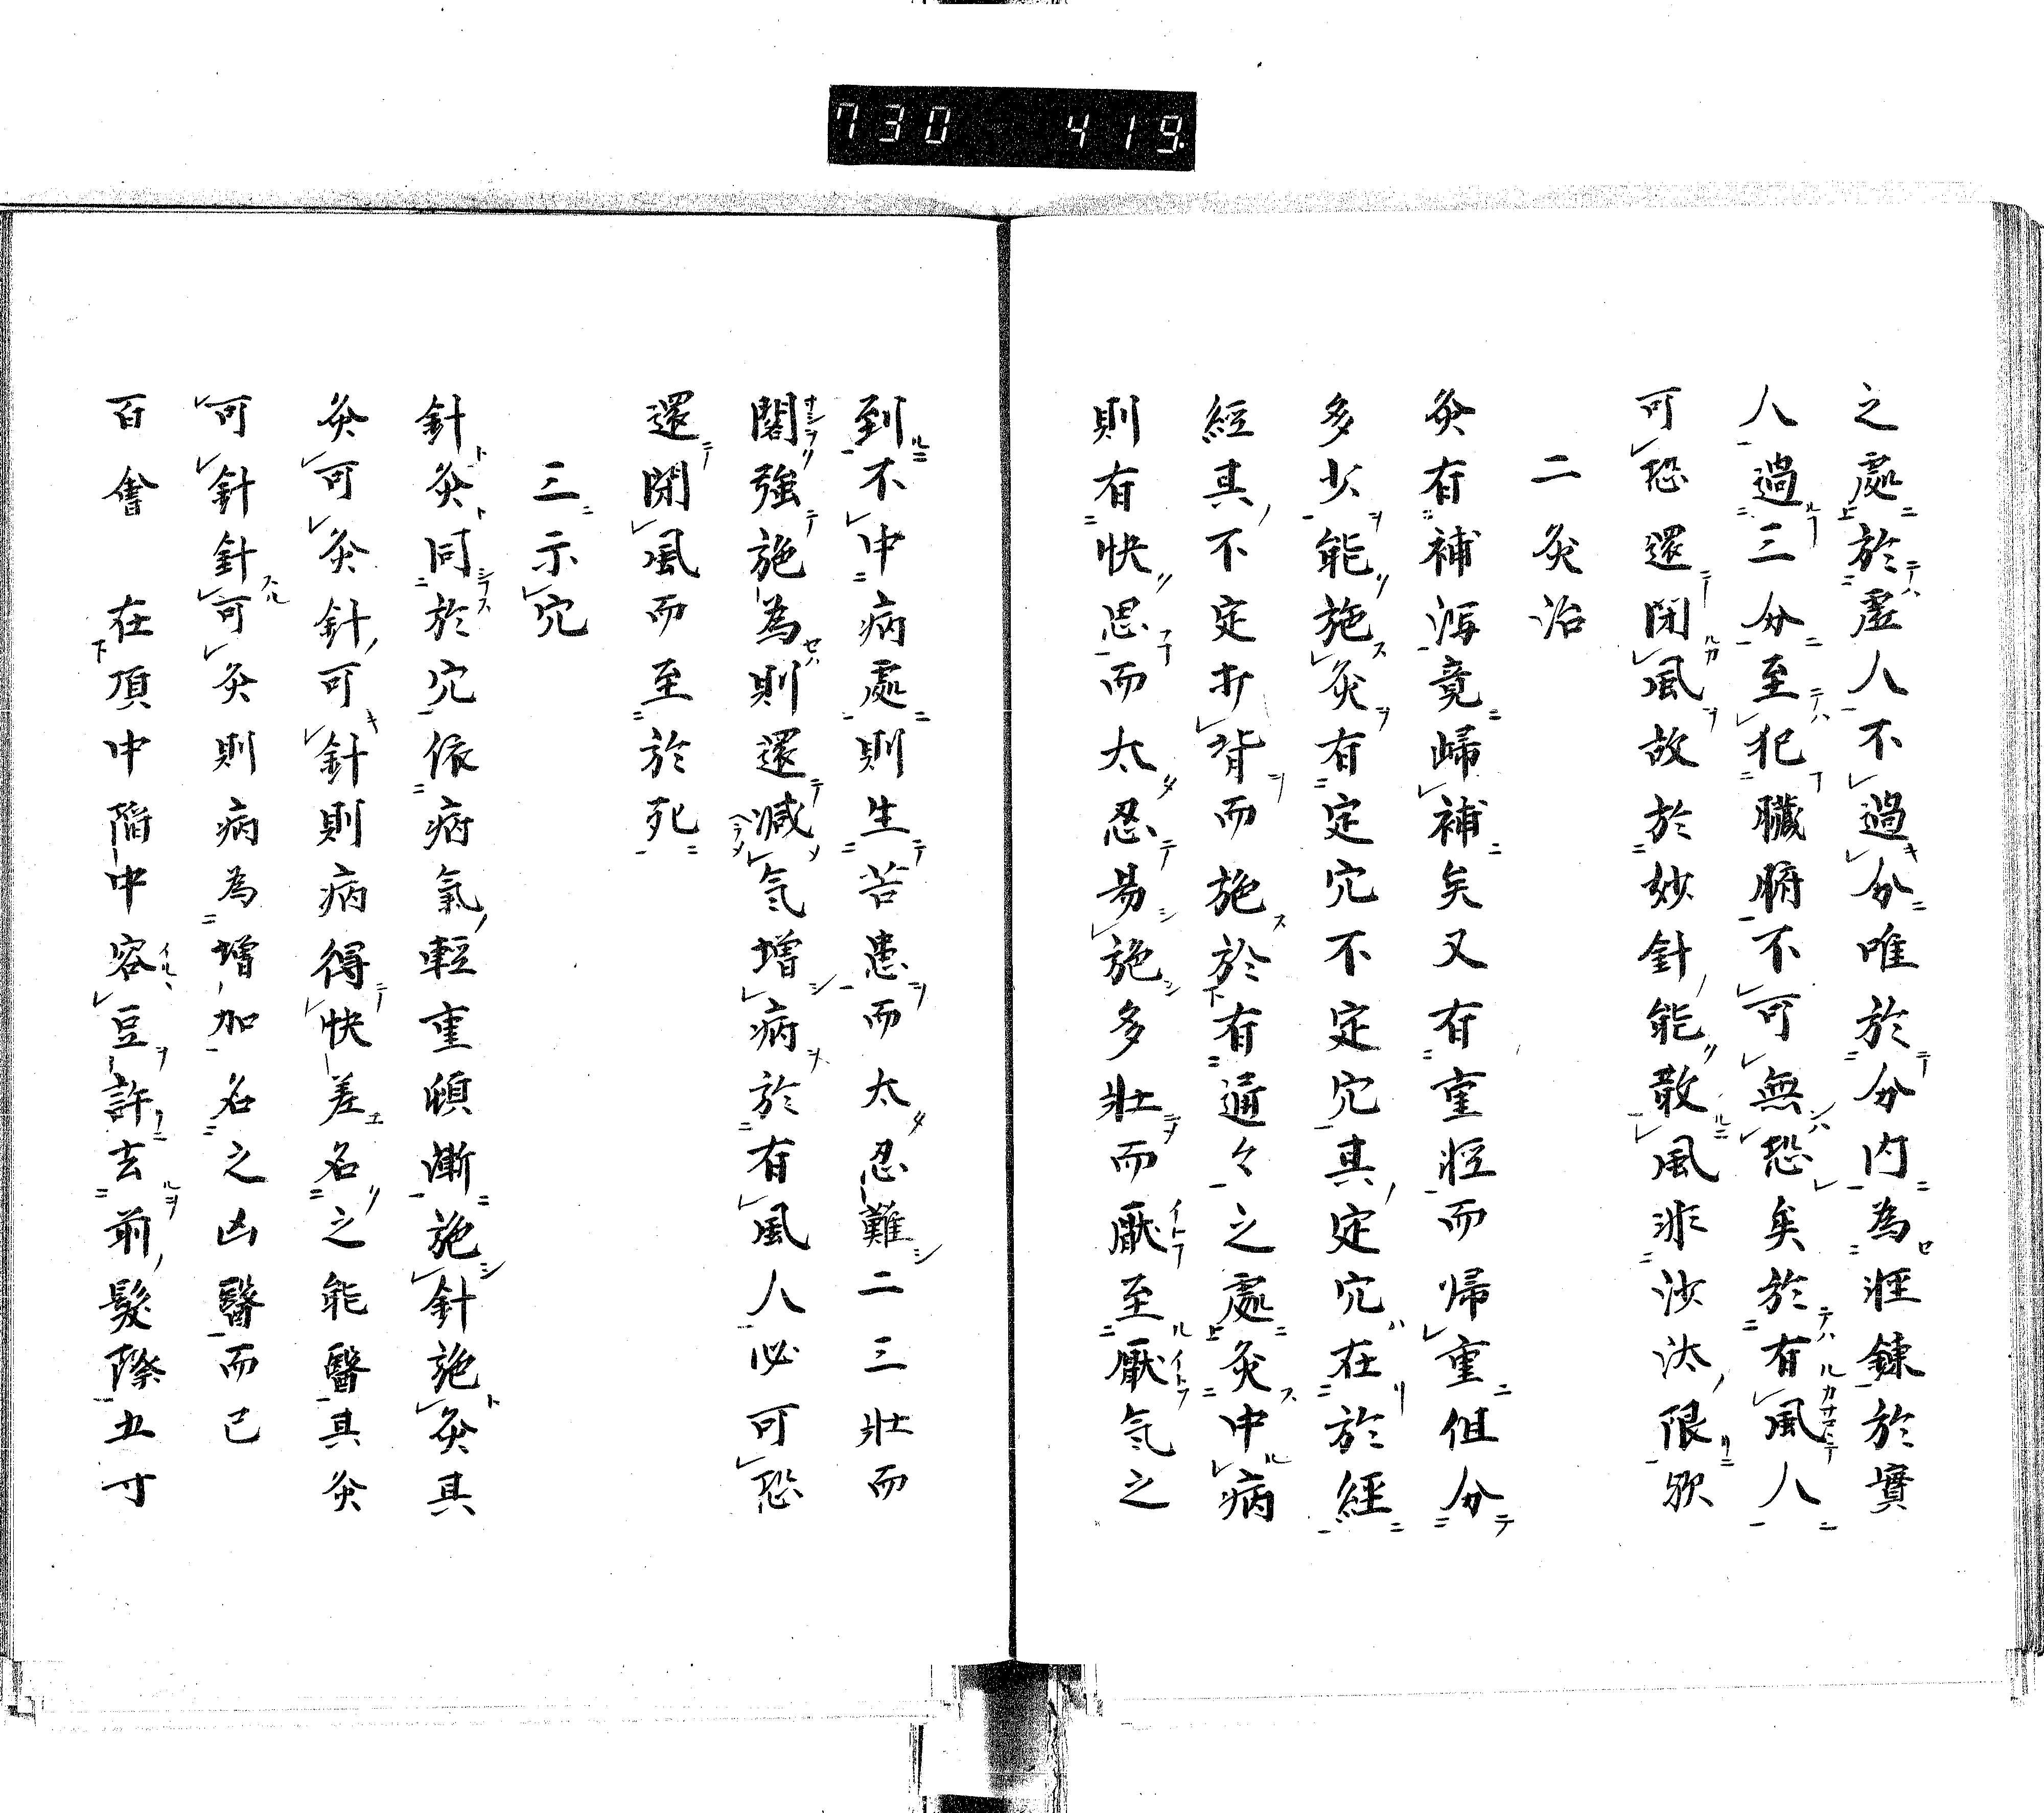 730 419
之處於虚人不過分唯於分内為狂錬於實
人過三分至犯臓腑不可無恐矣於有風人
可恐還閉風故於妙針能散風非沙汰限欤
二灸治
灸有補瀉竟歸補矣又有重症而帰重但分
多少能施灸有定穴不定穴其定穴在於經
經其不定求背而施於有通々之處灸中病
則有快思而太忍易施多壮而厭至厭气之
到不中病處則生苦患而太忍難二三壮而
閣強施為則還減气增病於有風人必可恐
還閉風而至於死
三示穴
針灸同於穴依病氣輕重傾漸施針施灸其
灸可灸針可針則病得快差名之能醫其灸
可針針可灸則病為增加名之凶醫而已
百會 在頂中陷中容豆許去前髮際五寸